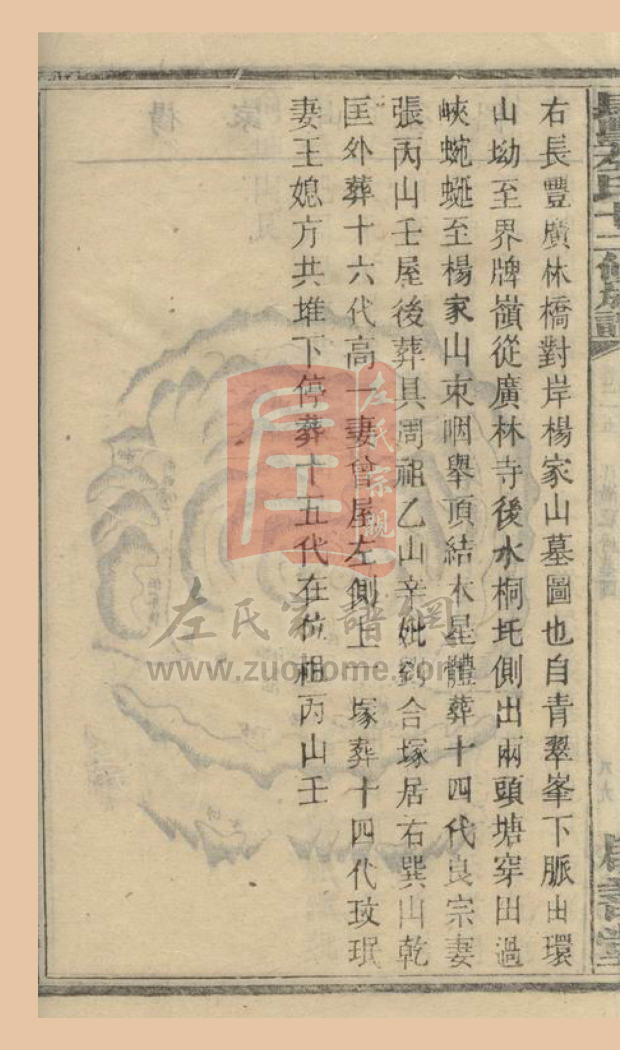 右長豐廣林橋對岸楊家山墓圖也自青翠峯下脈由環
山坳至界牌嶺從廣林寺後水桐坵側出兩頭塘穿田過
峽蜿蜒至楊家山束咽舉頂結木星體葬十四代良宗妻
張丙山壬屋後葬具周祖乙山辛妣劉合塚居右巽山乾
匡外葬十六代高一妻曾屋左側上一塚葬十四代玟珉
妻王媳方共堆下停葬十五代在位祖丙山壬
左氏十二修族譜
左氏宗親
左氏家譜網
www.zuohome.com